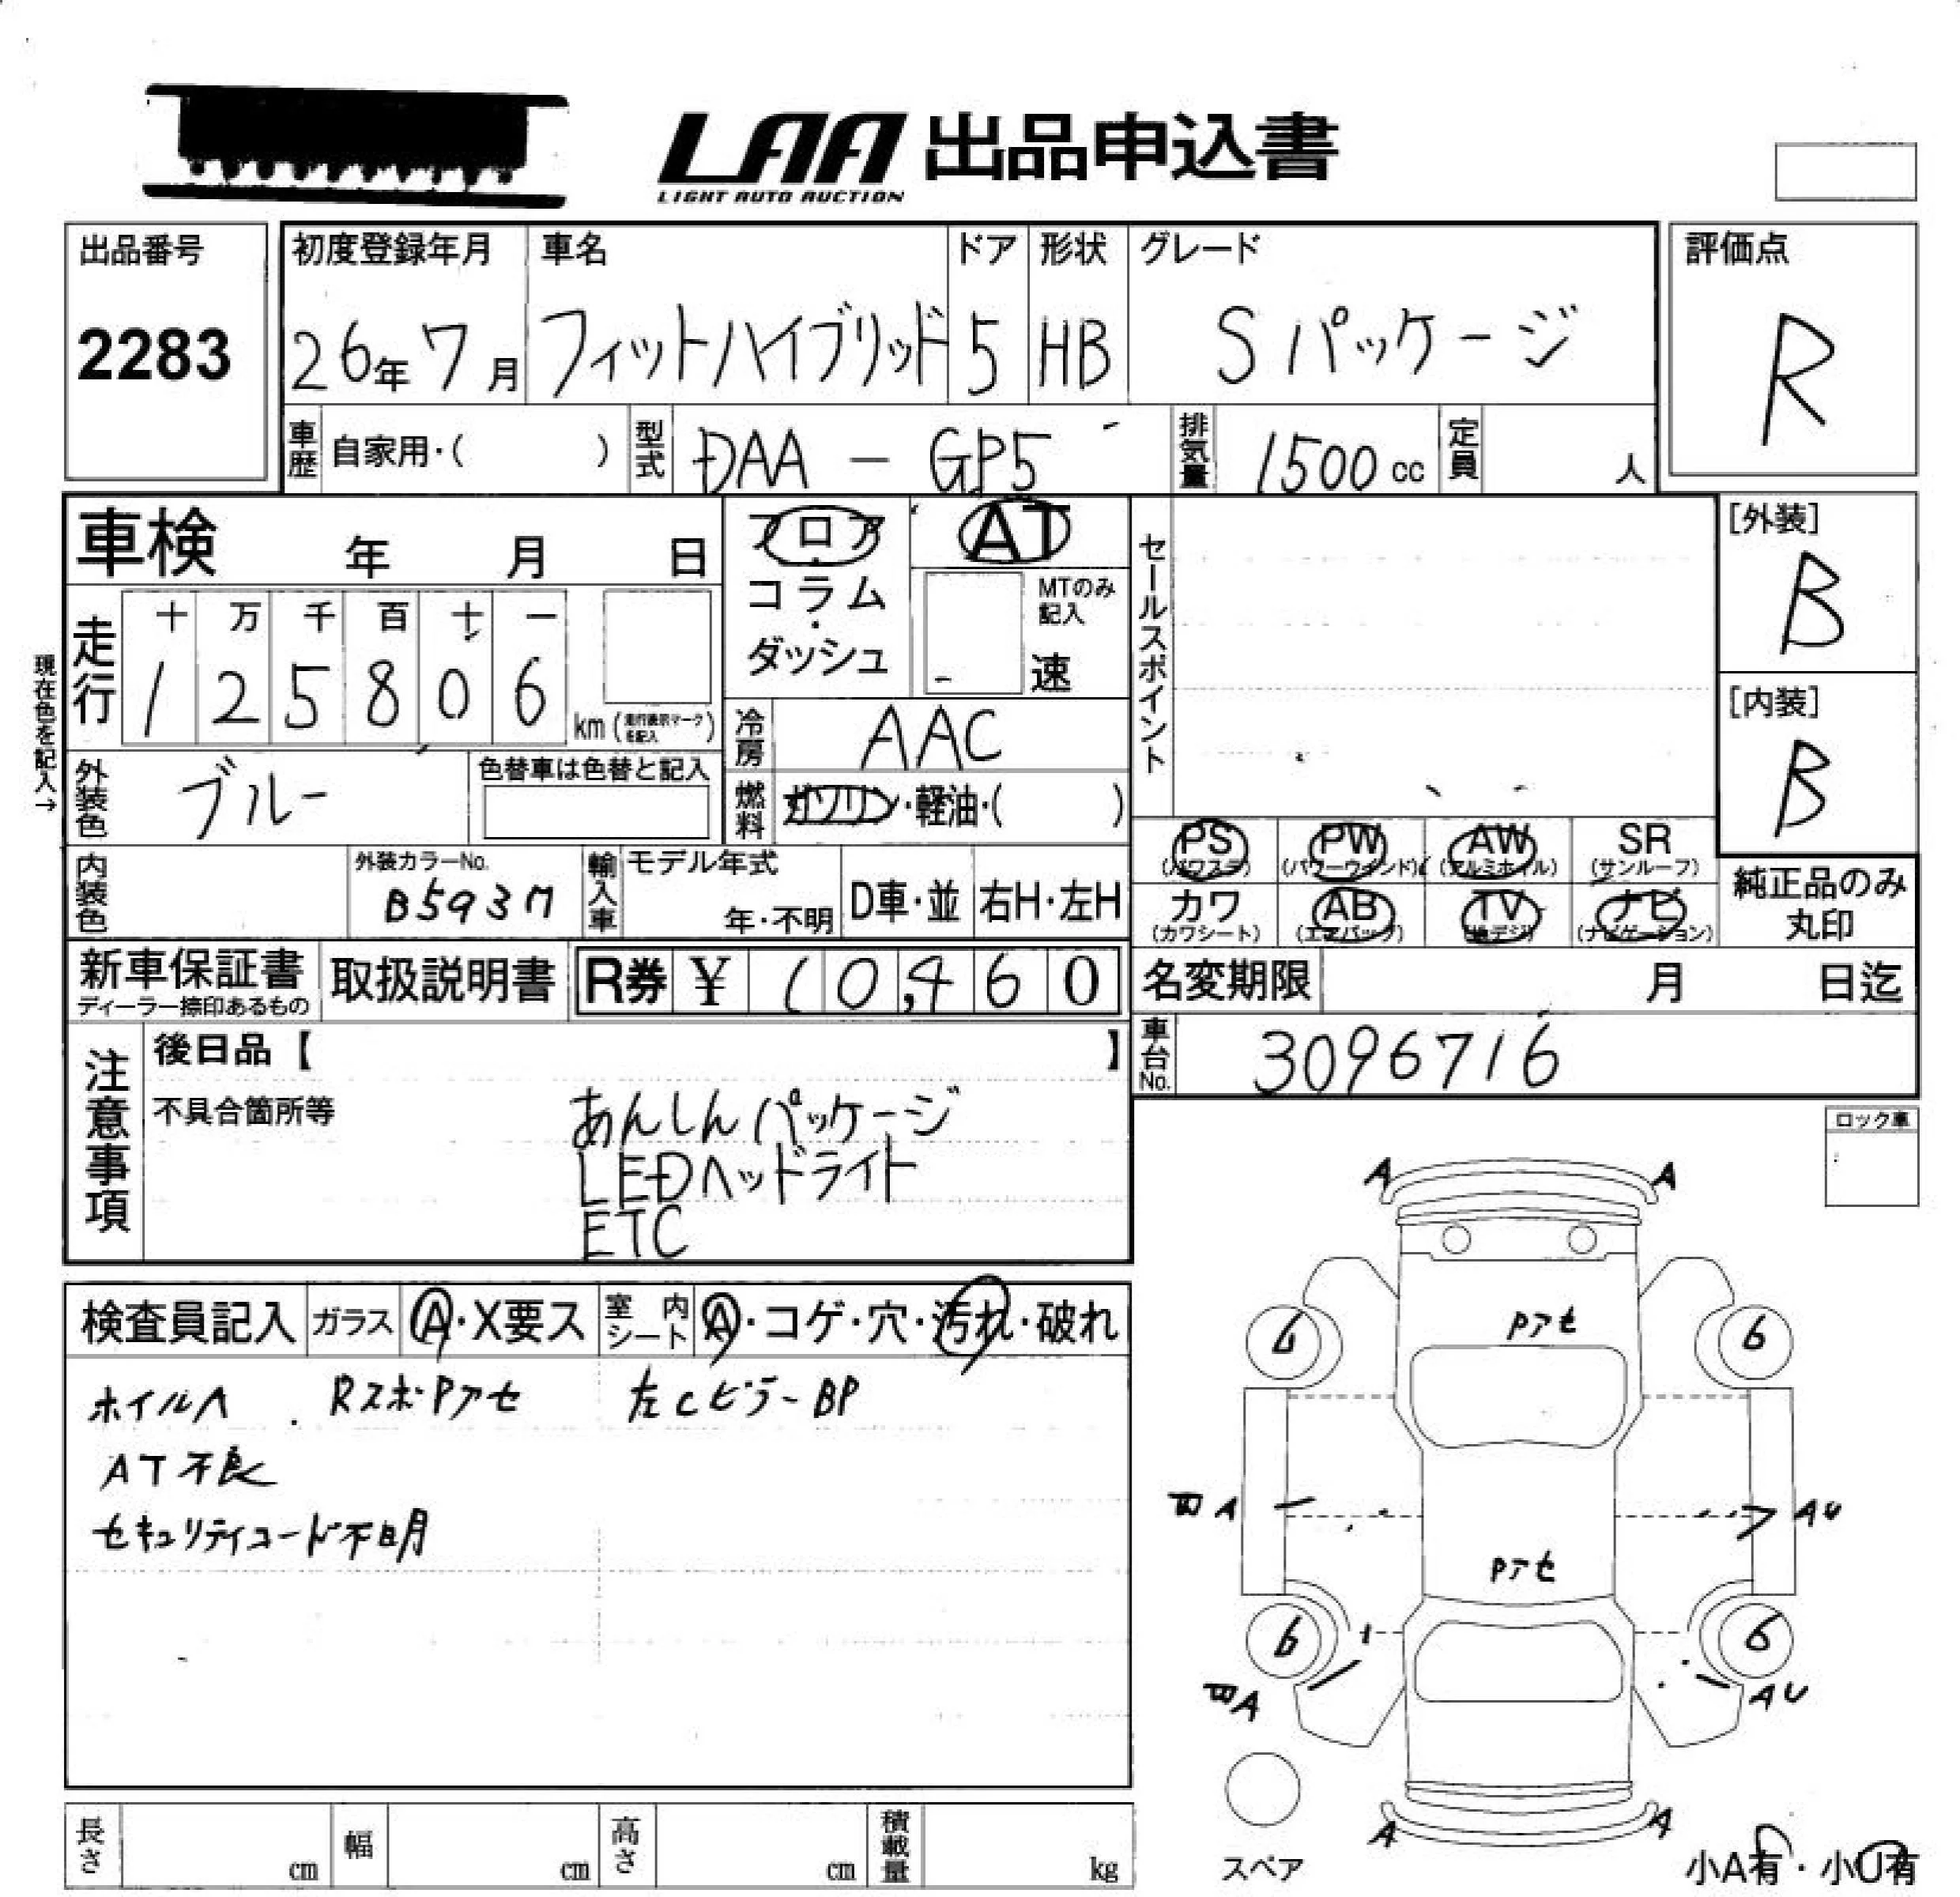 LAA 出品申込書
LIGHT AUTO AUCTION
出品番号
2283
初度登録年月
26年 7月
車名
フィットハイブリッド
ドア
5
形状
HB
グレード
Sパッケージ
評価点
R
車歴 自家用・( )
型式 DAA - GP5
排気量 1500 cc
定員 人
車検 年 月 日
フロア・コラム・ダッシュ
AT
MTのみ記入
速
セールスポイント
[外装]
B
[内装]
B
現在色を記入→
走行
十 万 千 百 十 一
1 2 5 8 0 6
km (走行表示マークを記入)
冷房 AAC
外装色 ブルー
色替車は色替と記入
燃料 ガソリン・軽油・( )
PS (パワステ)
PW (パワーウインド)
AW (アルミホイル)
SR (サンルーフ)
カワ (カワシート)
AB (エアバッグ)
TV (地デジ)
ナビ (ナビゲーション)
純正品のみ丸印
内装色
外装カラーNo.
B593M
輸入車 モデル年式
年・不明
D車・並
右H・左H
新車保証書
ディーラー捺印あるもの
取扱説明書
R券 ¥ 10,460
名変期限 月 日迄
車台No. 3096716
注意事項
後日品【 】
不具合箇所等
あんしんパッケージ
LEDヘッドライト
ETC
ロック車
検査員記入 ガラス A・X要ス 室内シート A・コゲ・穴・汚れ・破れ
ホイルA RスポPアセ 左Cピラー BP
AT不良
セキュリティコード不明
A A
Pアセ
6 6
A AU
Pアセ
6 6
A AU
A A
スペア
小A有・小U有
長さ cm 幅 cm 高さ cm 積載量 kg